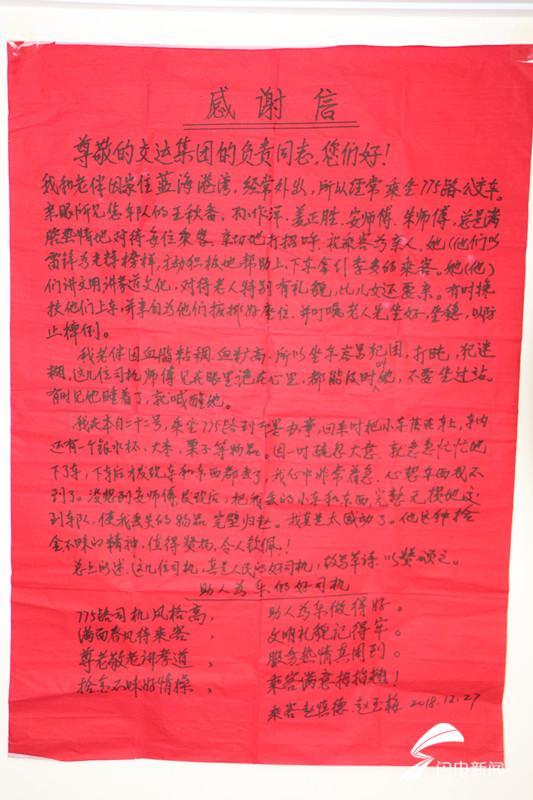 感谢信
尊敬的交运集团的负责同志，您们好！
我和老伴因家住蓝海港湾，经常外出，所以经常乘坐775路公交车。
亲眼所见您车队的王秋香、姜正胜、安师傅、朱师傅，总是满
腔热情地对待每位乘客，亲切地打招呼，视乘客为亲人，她（他）们以
雷锋为光辉榜样，主动积极地帮助上、下车拿行李多的乘客。她（他）
们讲文明讲孝道文化，对待老人特别有礼貌，比儿女还要亲。有时搀
扶他们上车，并亲自为他们找座位，并叮嘱老人先坐好，坐稳，以防
止摔倒。
我老伴因血脂粘稠，血糖高，所以坐车容易犯困，打盹，犯迷
糊，这几位司机师傅见在眼里记在心里，都能及时，不要坐过站。
有时见他睡着了，就喊醒她。
我在本月二十二号，乘坐775路到即墨办事，回来时把小车落在车上，车内
还有一个银水杯，大枣，栗子等物品。因一时疏忽大意，就急急忙忙地
下了车，下车后才发现车和东西都丢了，我心中非常着急，心想东西找不
到了。没想到安师傅发现后，把我丢的小车和东西，完整无损地送
到车队，使我丢失的物品完璧归赵。我真是太感动了。他这种拾
金不昧的精神，值得赞扬，令人钦佩！
总上所述，这几位司机，真是人民的好司机，故写草诗，以赞颂之。
助人为乐的好司机
775路司机风格高，助人为乐做得好。
满面春风待乘客，文明礼貌记得牢。
尊老敬老讲孝道，服务热情真周到。
拾金不昧好情操，乘客满意拍拍翘！
乘客赵慎德 赵玉梅 2018.12.27
闪电新闻